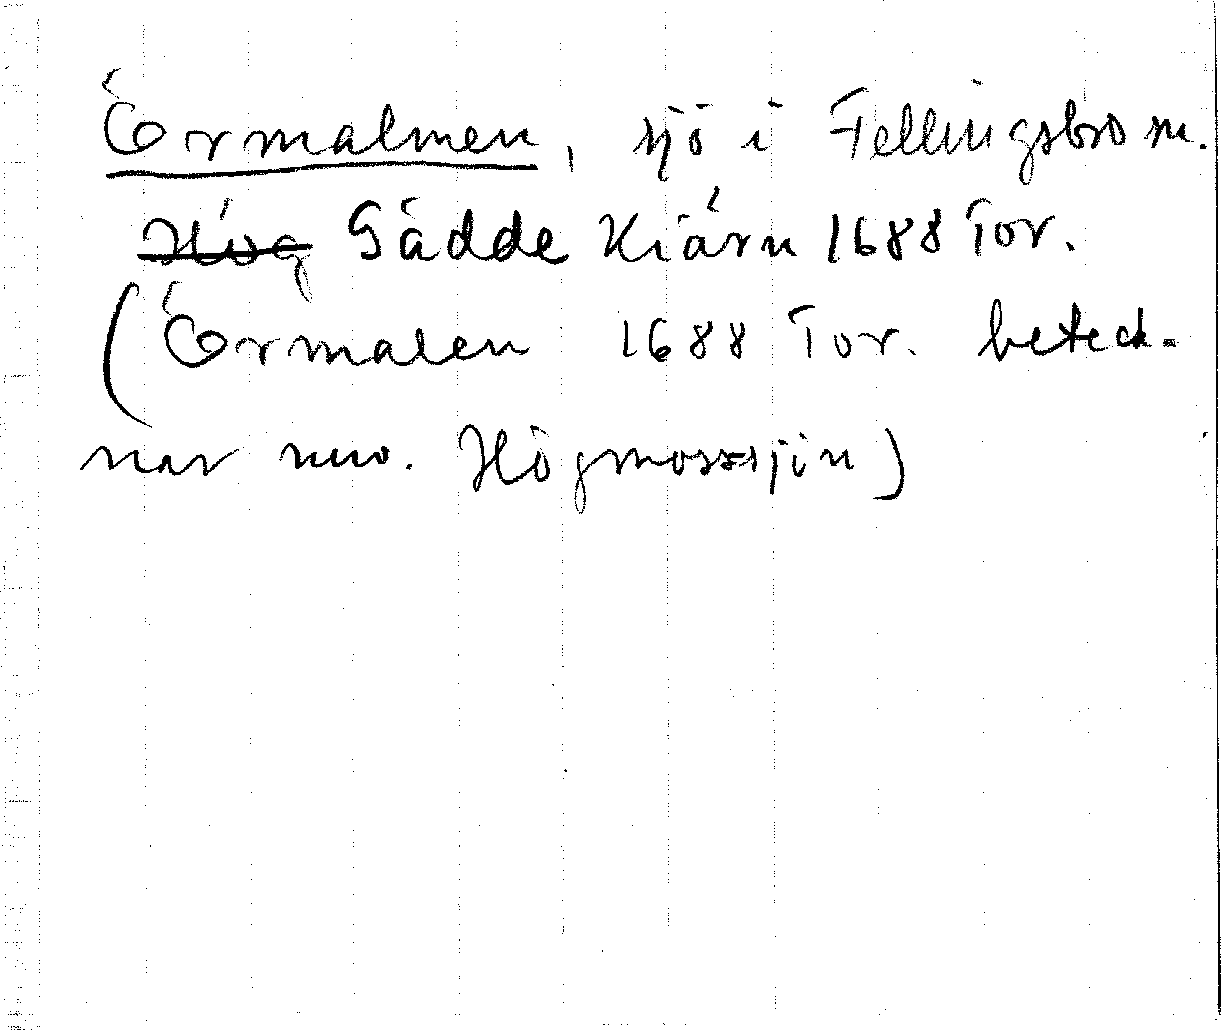 Örmalmen, sjö i Fellingsbro sn.
Hög Gädde Kiärn 1688 Tor.
(Örmalen 1688 Tor. beteck-
nar nuv. Högmosssjön)